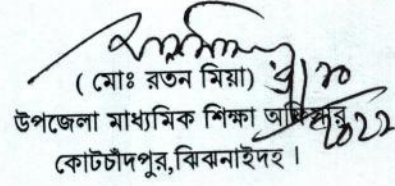 ( মোঃ রতন মিয়া)
উপজেলা মাধ্যমিক শিক্ষা অফিসার
কোটচাঁদপুর,ঝিনাইদহ।
২০২২